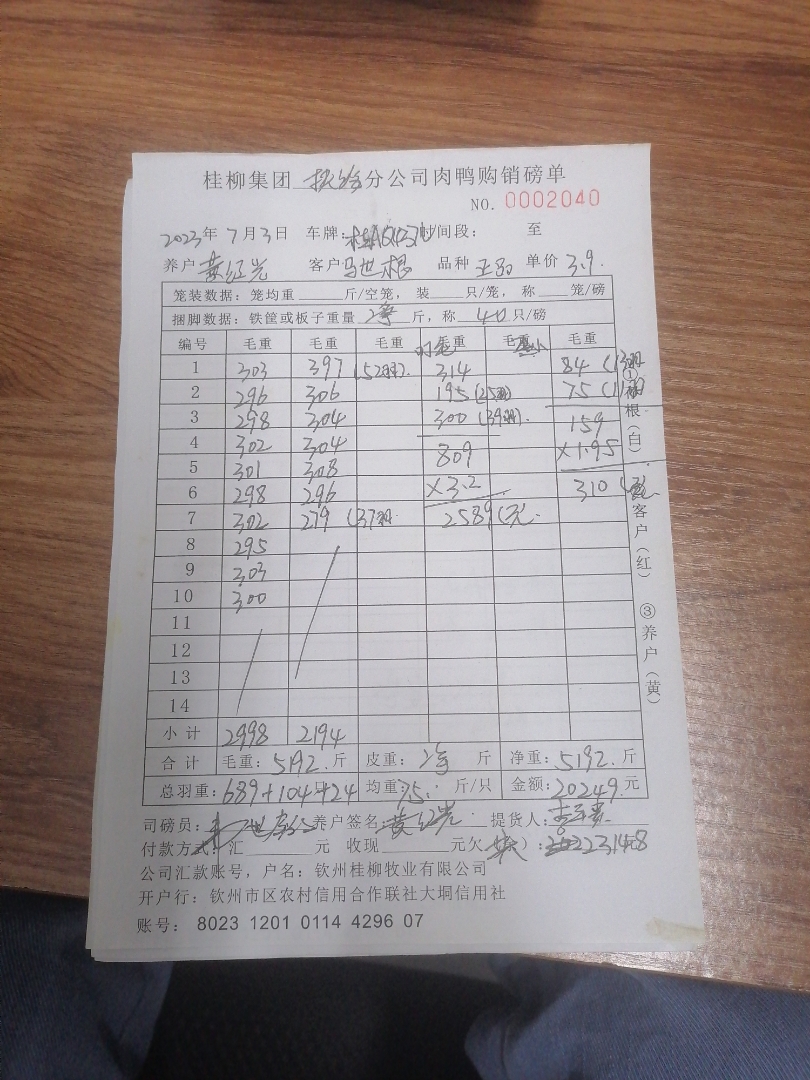 桂柳集团 分公司肉鸭购销磅单
NO. 0002040
2023年 7月 3日 车牌: 时间段: 至
养户 黄红光 客户 马世根 品种 单价 3.9.
笼装数据: 笼均重 斤/空笼, 装 只/笼, 称 笼/磅
捆脚数据: 铁筐或板子重量 净 斤, 称 40 只/磅
编号 毛重 毛重 毛重 毛重 毛重 毛重
1 303 397 (52羽). 314 84 (13羽
2 296 306 195 (25羽) 75 (11羽)
3 298 304 300 (39羽). 159
4 302 304 809 ×1.95
5 301 308
6 298 296 ×3.2 310 (元
7 302 279 (37羽. 2589 (元.
8 295
9 303
10 300
11
12
13
14
小计 2998 2194
合计 毛重: 5192. 斤 皮重: 净 斤 净重: 5192. 斤
总羽重: 689+104+24 均重: 7.5. 斤/只 金额: 20249. 元
司磅员: 养户签名: 黄红光 提货人:
付款方式: 汇 元 收现 元欠 ): 23148
公司汇款账号, 户名: 钦州桂柳牧业有限公司
开户行: 钦州市区农村信用合作联社大垌信用社
账号: 8023 1201 0114 4296 07
① 根(白) 客户(红) ③养户(黄)